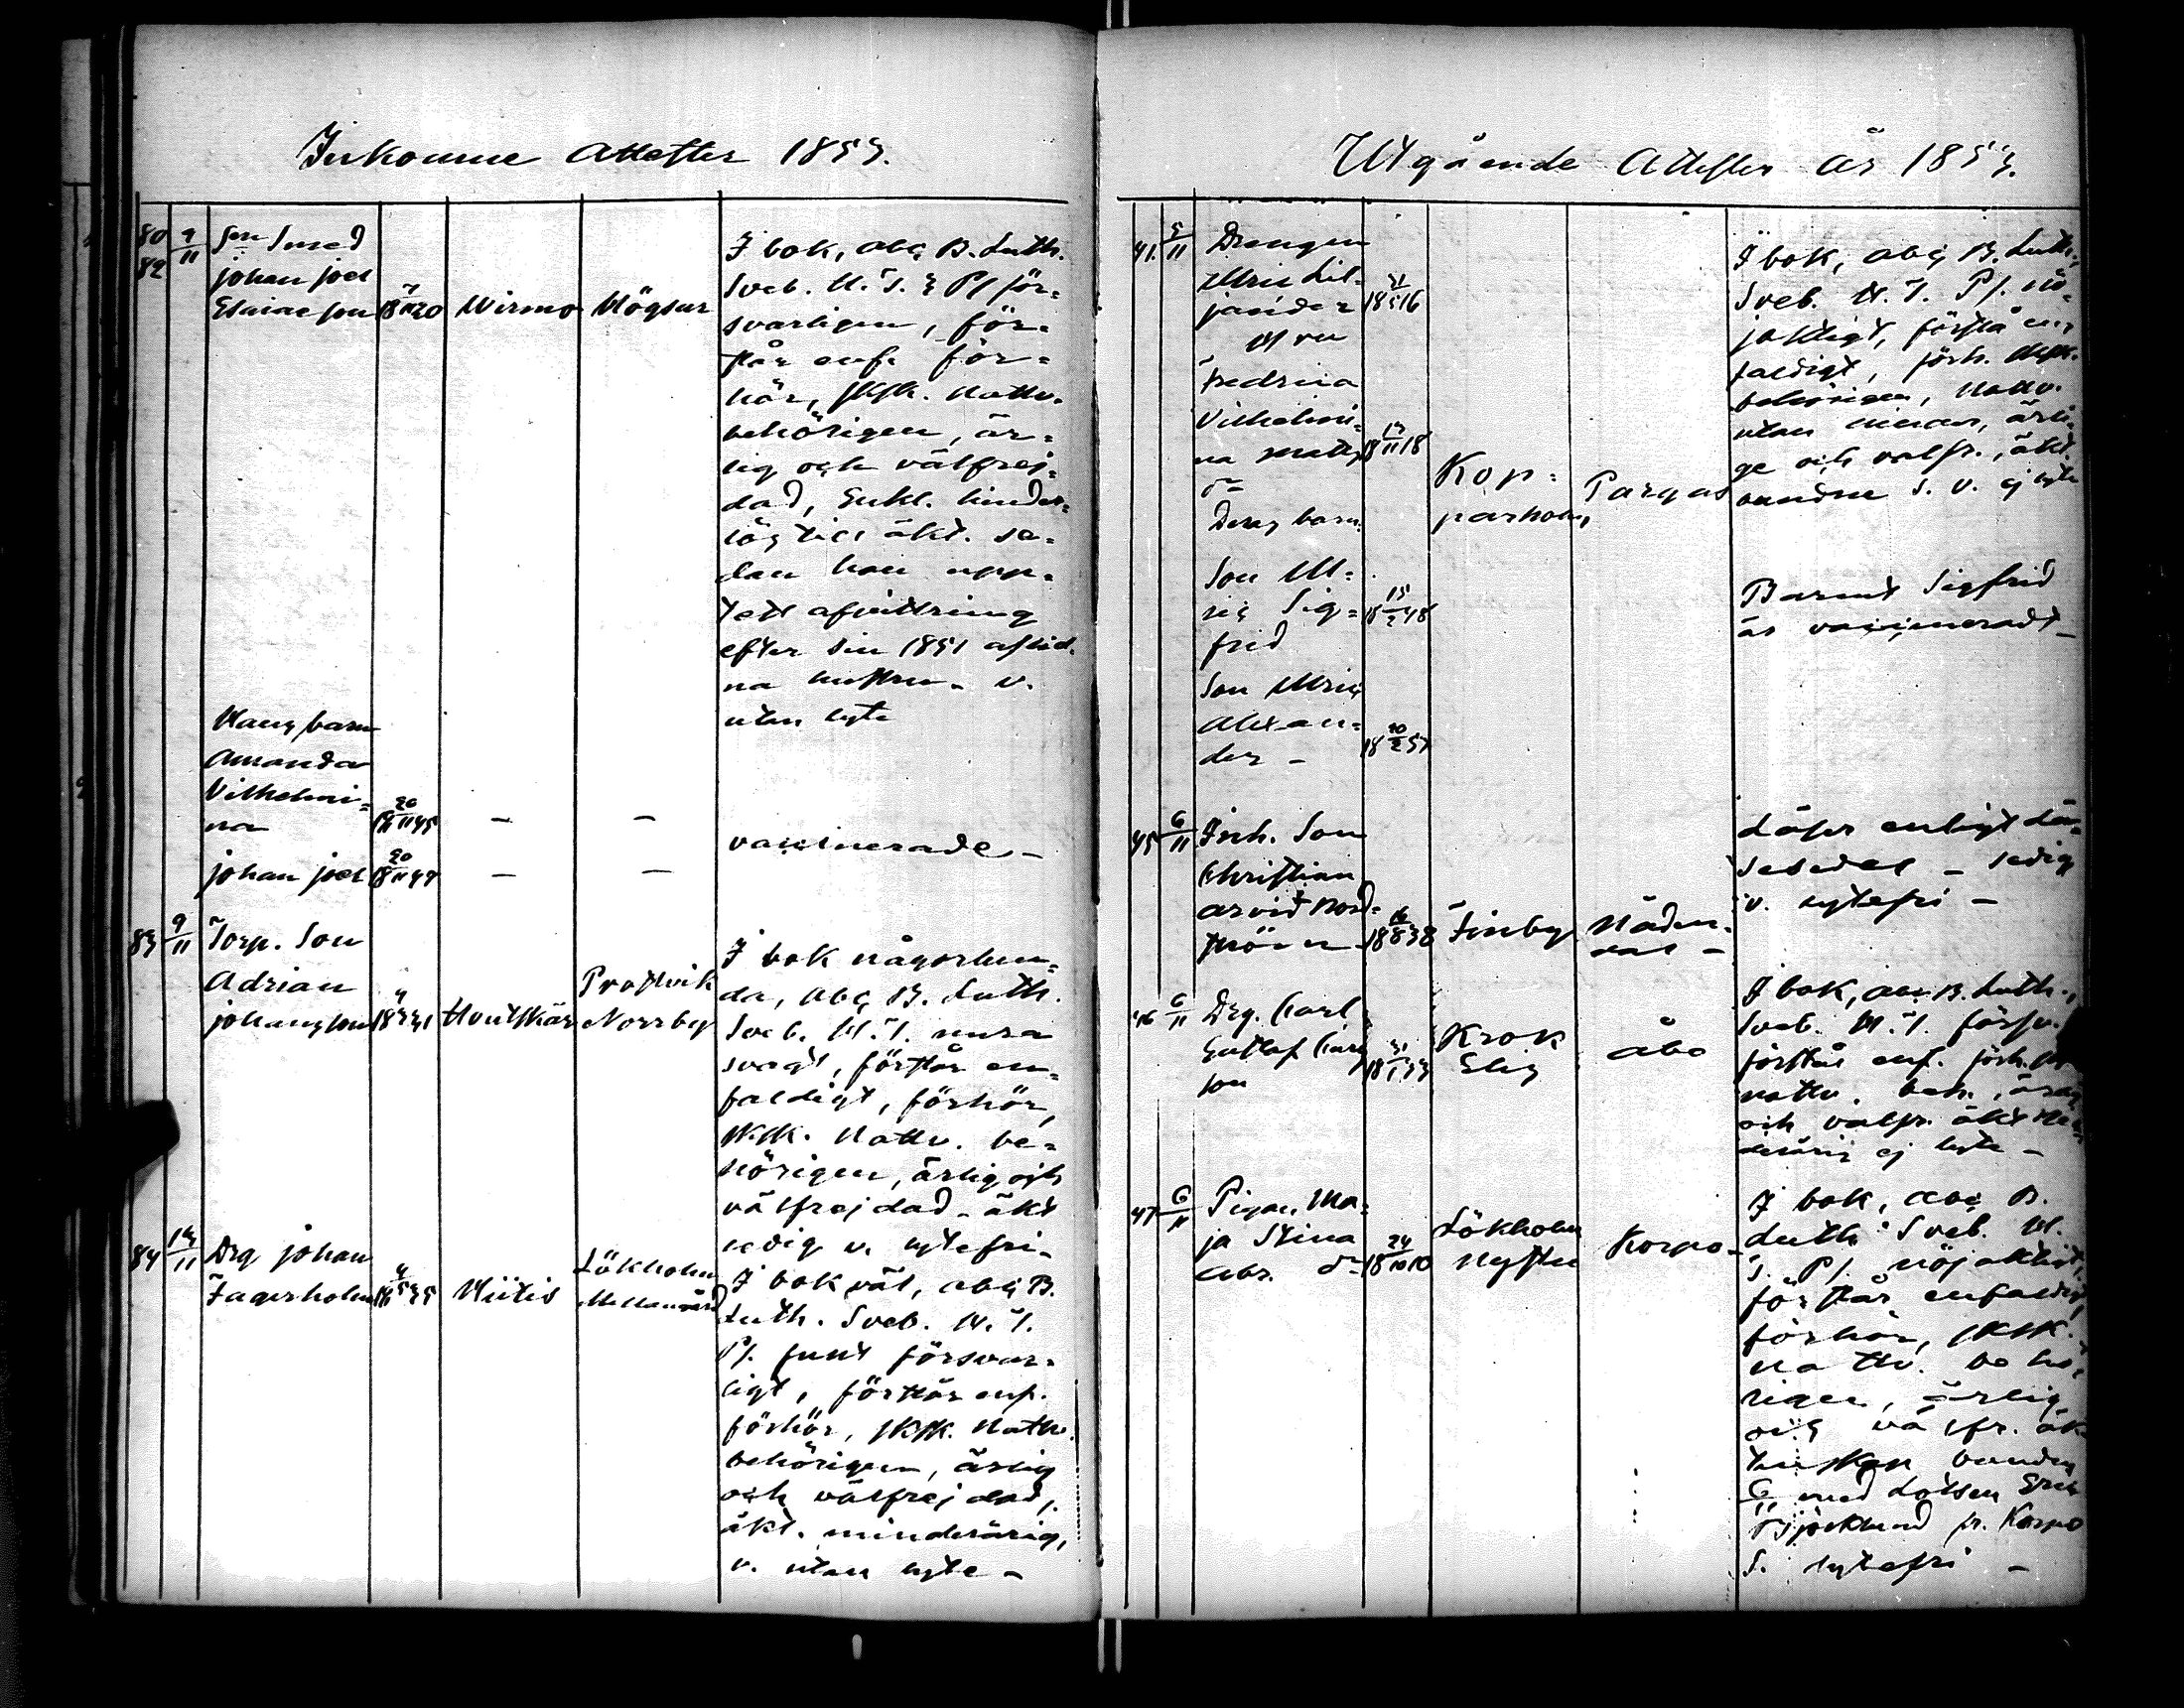 Inkomne Attester 1853.
80 7/11 Smed
82 johan joel
Esaiae son 18 7/11 20 Wirmo Högsar
I bok, abc, B. Luth.
Sveb. H. T. & Ps för=
svarligen, för=
står enf. för=
hör, Nattv.
behörigen, är=
lig och välfrej=
dad, Enkl. hinder=
lös till äkt. se=
dan han upp=
tett afvittring
efter sin 1851 aflid.
na hustru. v.
utan lyte
Hans barn
Amanda
Vilhelmi=
na 18 20/11 45 — —
vaccinerade —
johan joel 18 20/11 47 — —
83 9/11 Torp. Son
Adrian
johansson Houtskär Prostvik
Norrby
I bok någorlun=
da, abc, B. Luth.
Sveb. H. T. mera
svagt, förstår en=
faldigt, förhör,
Nattv. be=
hörigen, ärlig och
välfrejdad — äkt
ledig v. lytefri —
84 14/11 Drg johan
Fagerholm Hiitis Lökholm
Mellangård
I bok väl, abc, B.
Luth. Sveb. H. T.
Ps. samt försvar=
ligt, förstår enf.
förhör, Nattv.
behörigen, ärlig
och välfrejdad,
äkt. minderårig,
v. utan lyte —
Utgående Attester år 1853.
41. 5/11 Drengen
Ulric Lil=
jander
Hustru
Fredrica
Vilhelmi=
na Matts
dr 18 11 18
Kop=
parholm, Pargas
I bok, abc, B. Luth.,
Sveb. H. T. Ps. nö=
jaktigt, förstå en=
faldigt, förh.
behörigen, Nattv.
utan ärli=
ge och välfr., äkt.
bundne s. v. ej lyte
Deras barn.
Son Ul=
ric Sig=
frid 18 15/2 48
Barnet Sigfrid
är vaccineradt —
Son Ulric
Alexan=
der —
45 6/11 Inh. Son
Christian
Arvid Nord=
ström 18 16/8 38 Finby Näden=
dal —
Läser enligt Lä=
sesedel — ledig
v. lytefri —
46 6/11 Drg. Carl
Gustaf Carls
son 18 31/1 33 Krok
Elis Åbo
I bok, abc, B. Luth.,
Sveb. H. T. försv.
förstår enf. förh.
nattv. beh., ärlig
och välfr. äkt.
derårig ej lyte —
47 6/11 Pigan Ma=
ja Stina
Abr. dr 18 24/10 10 Lökholm
Nystu Korpo —
I bok, abc, B.
Luth. Sveb. H.
T. Ps. nöjaktigt,
förstår enfaldigt,
förhör,
nattv. behö=
rigen, ärlig
och välfr. äk=
tenskap bunden
6/11 med Lotsen Erik
Björklund fr. Korpo
S. lytefri —